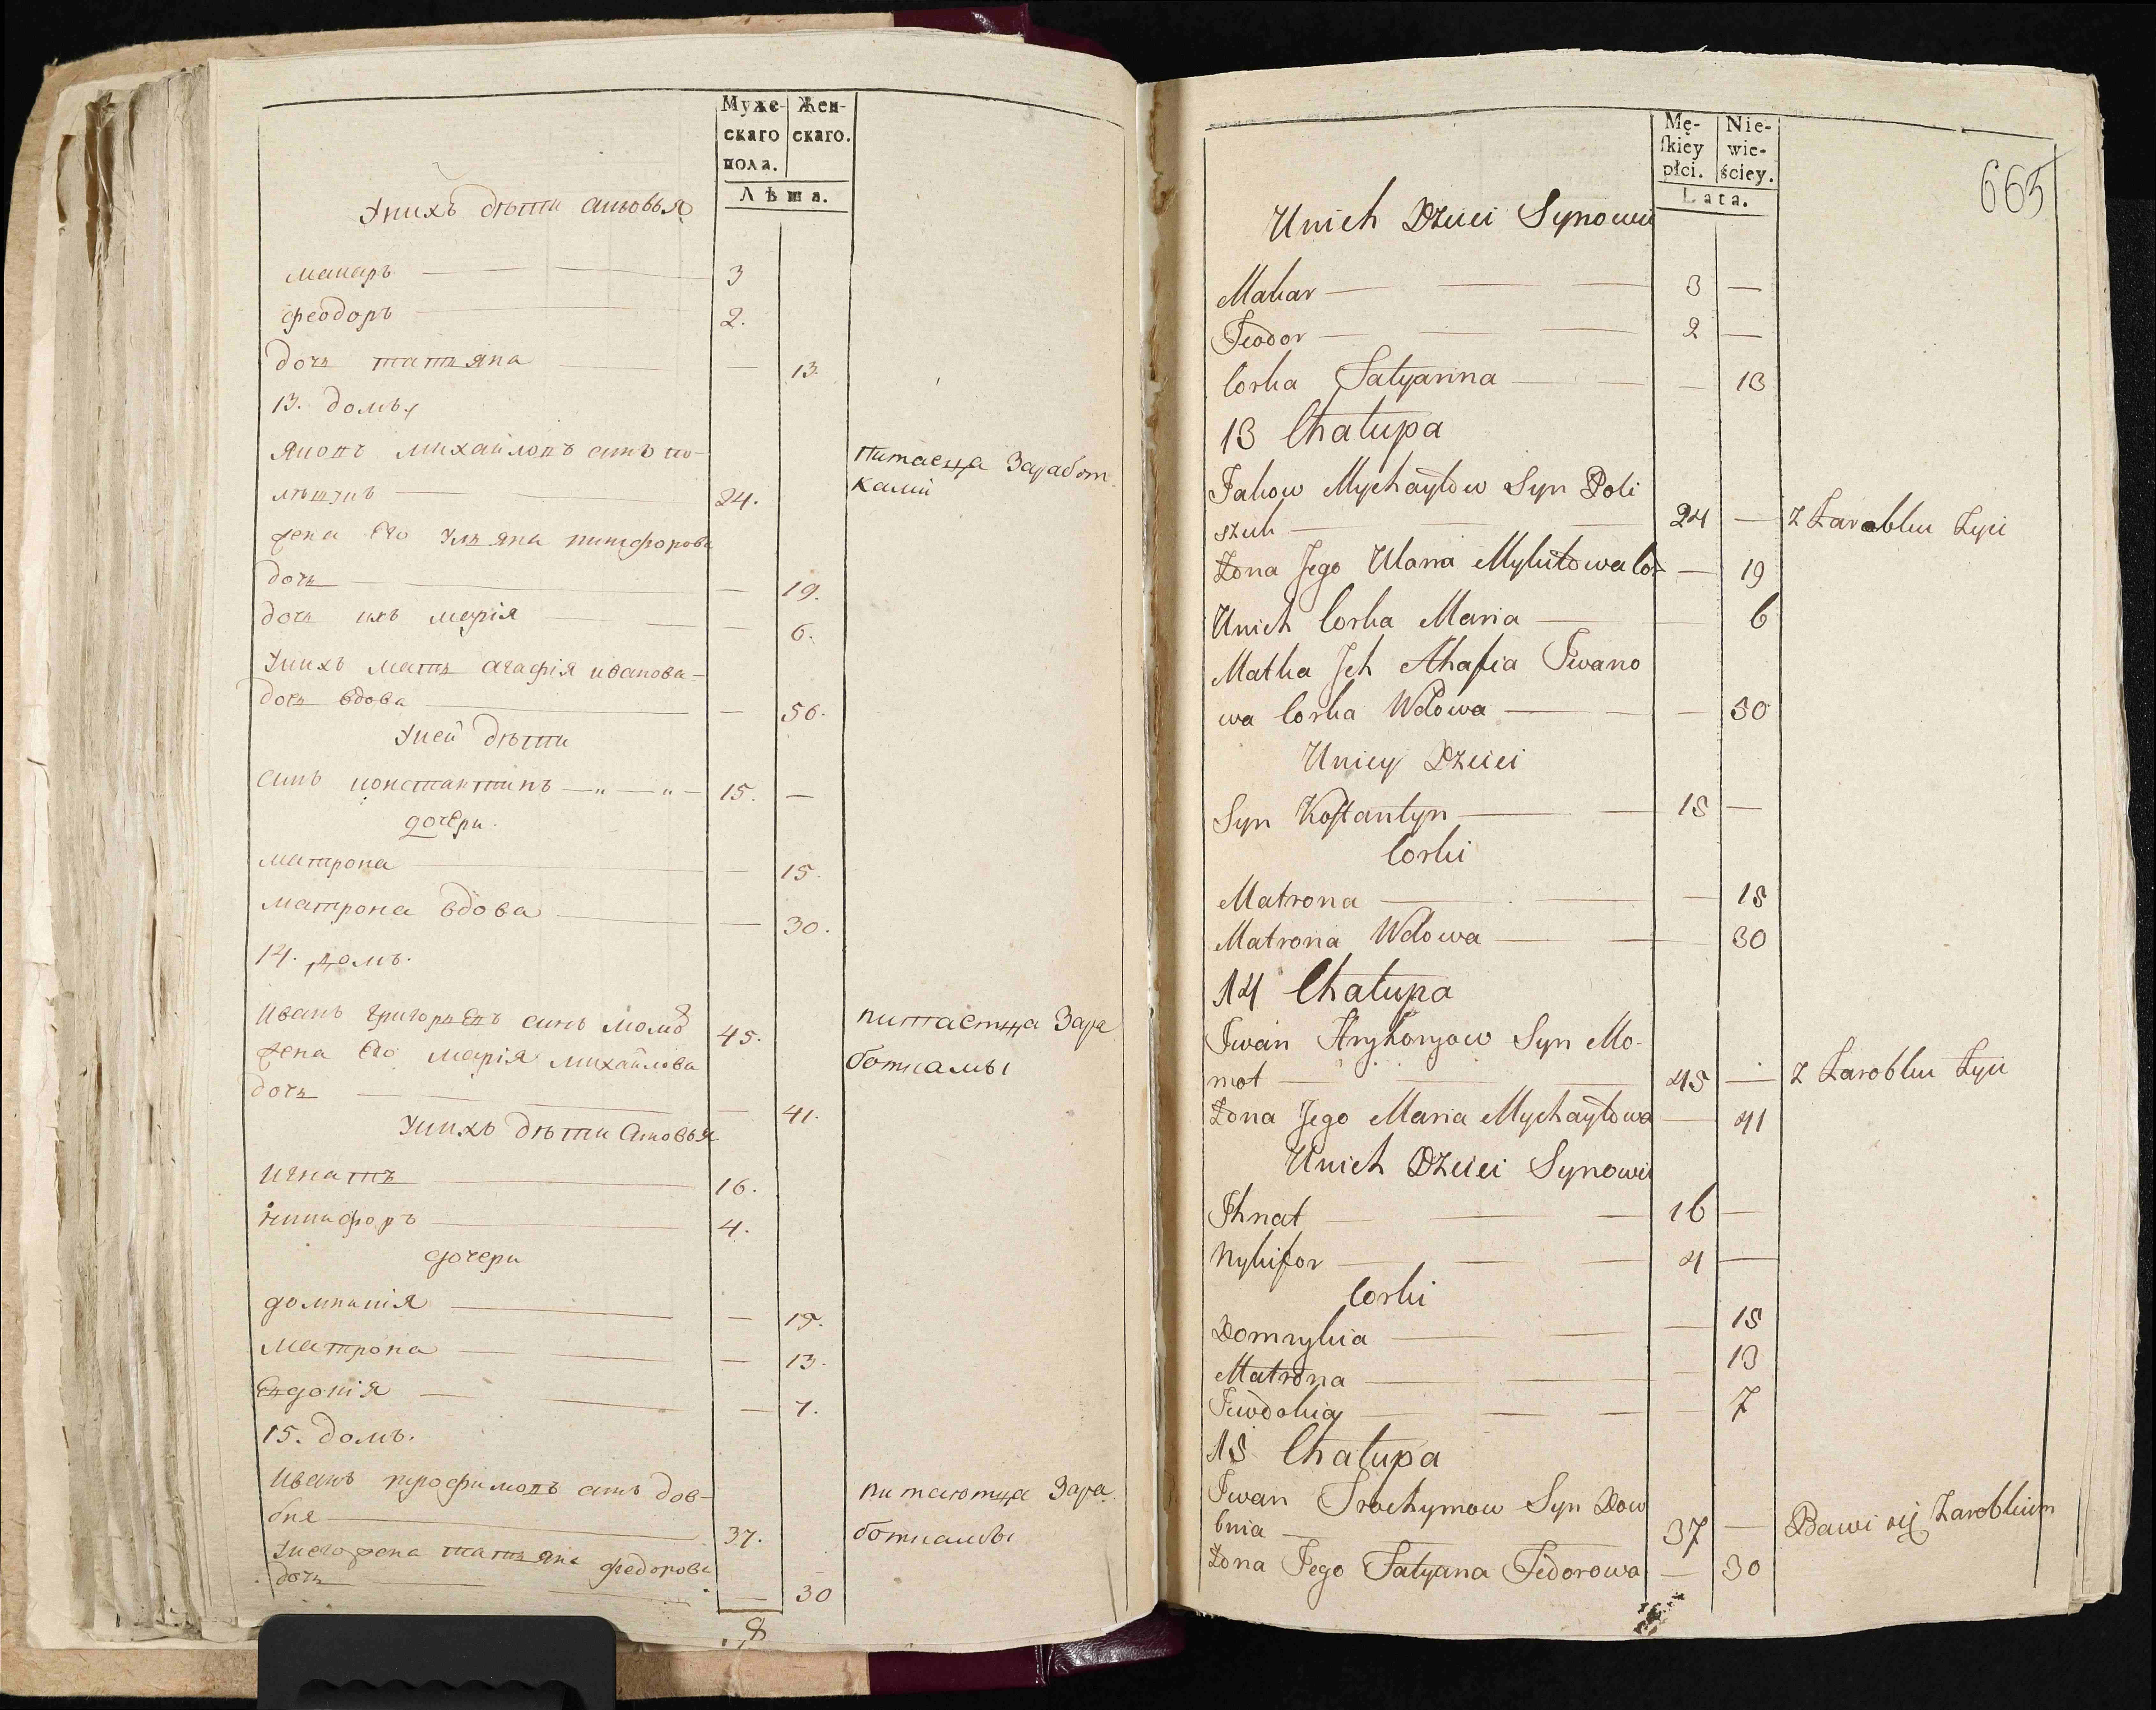 Муже-
скаго
пола.
Жен-
скаго.
Лѣта.
Унихъ дѣти синовья
макаръ 3
феодоръ 2.
дочь татьяна — 13.
13. домъ,
яковъ михайловъ синъ по-
лѣщукъ 24.
питаеца Заработ
ками
жена Его Ульяна никифорова
дочь — 19.
дочь ихъ марія — 6.
Унихъ мать агафія иванова-
дочь вдова — 50.
Уней дѣти
синъ константинъ —„—„— 15. —
дочери.
матрона — 15.
матрона вдова — 30.
14. домъ.
иванъ григорьевъ синъ момо 45.
питаетца Зара
жена Его марія михайлова
ботками
дочь — 41.
Унихъ дѣти синовья
игнатъ 16.
никифоръ 4.
дочери
домникія — 15.
матрона — 13.
Евдокія — 7.
15. домъ.
иванъ трофимовъ синъ дов-
бня 37.
питаютца Зара
ботками
Унего жена татьяна федорова
дочь — 30
8
Mę-
ſkiey
płci.
Nie-
wie-
ściey.
Lata.
665
Unich Dzieci Synowie
Makar 3 —
Feodor 2 —
Corka Tatyanna — 13
13 Chałupa
Jakow Mychayłow Syn Poli
szuk 24 — Z Zarobku Zyie
Zona Jego Ulana Mykitowa Cor — 19
Unich Corka Maria 6
Matka Jch Ahafia Jwano
wa Corka Wdowa — 50
Uniey Dzieci
Syn Koſtantyn 15 —
Corki
Matrona — 15
Matrona Wdowa — 30
14 Chałupa
Jwan Hryhoryow Syn Mo-
mot 45 — Z Zarobku Zyie
Zona Jego Maria Mychayłowa — 41
Unich Dzieci Synowie
Jhnat 16 —
Nykifor 4 —
Corki
Domnykia — 15
Matrona 13
Jewdokia 7
15 Chałupa
Jwan Trochymow Syn Dow
bnia 37 — Bawi się Zarobkiem
Zona Jego Tatyana Fedorowa — 30